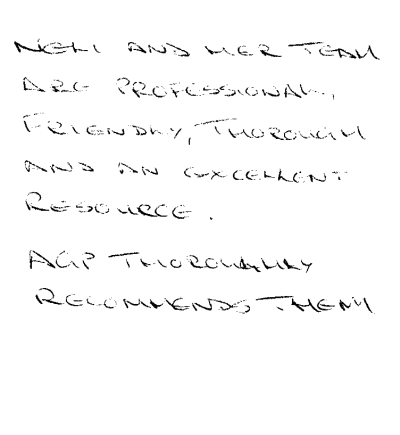 NELI AND HER TEAM
ARE PROFESSIONAL,
FRIENDLY, THOROUGH
AND AN EXCELLENT
RESOURCE.
AGP THOROUGHLY
RECOMMENDS THEM